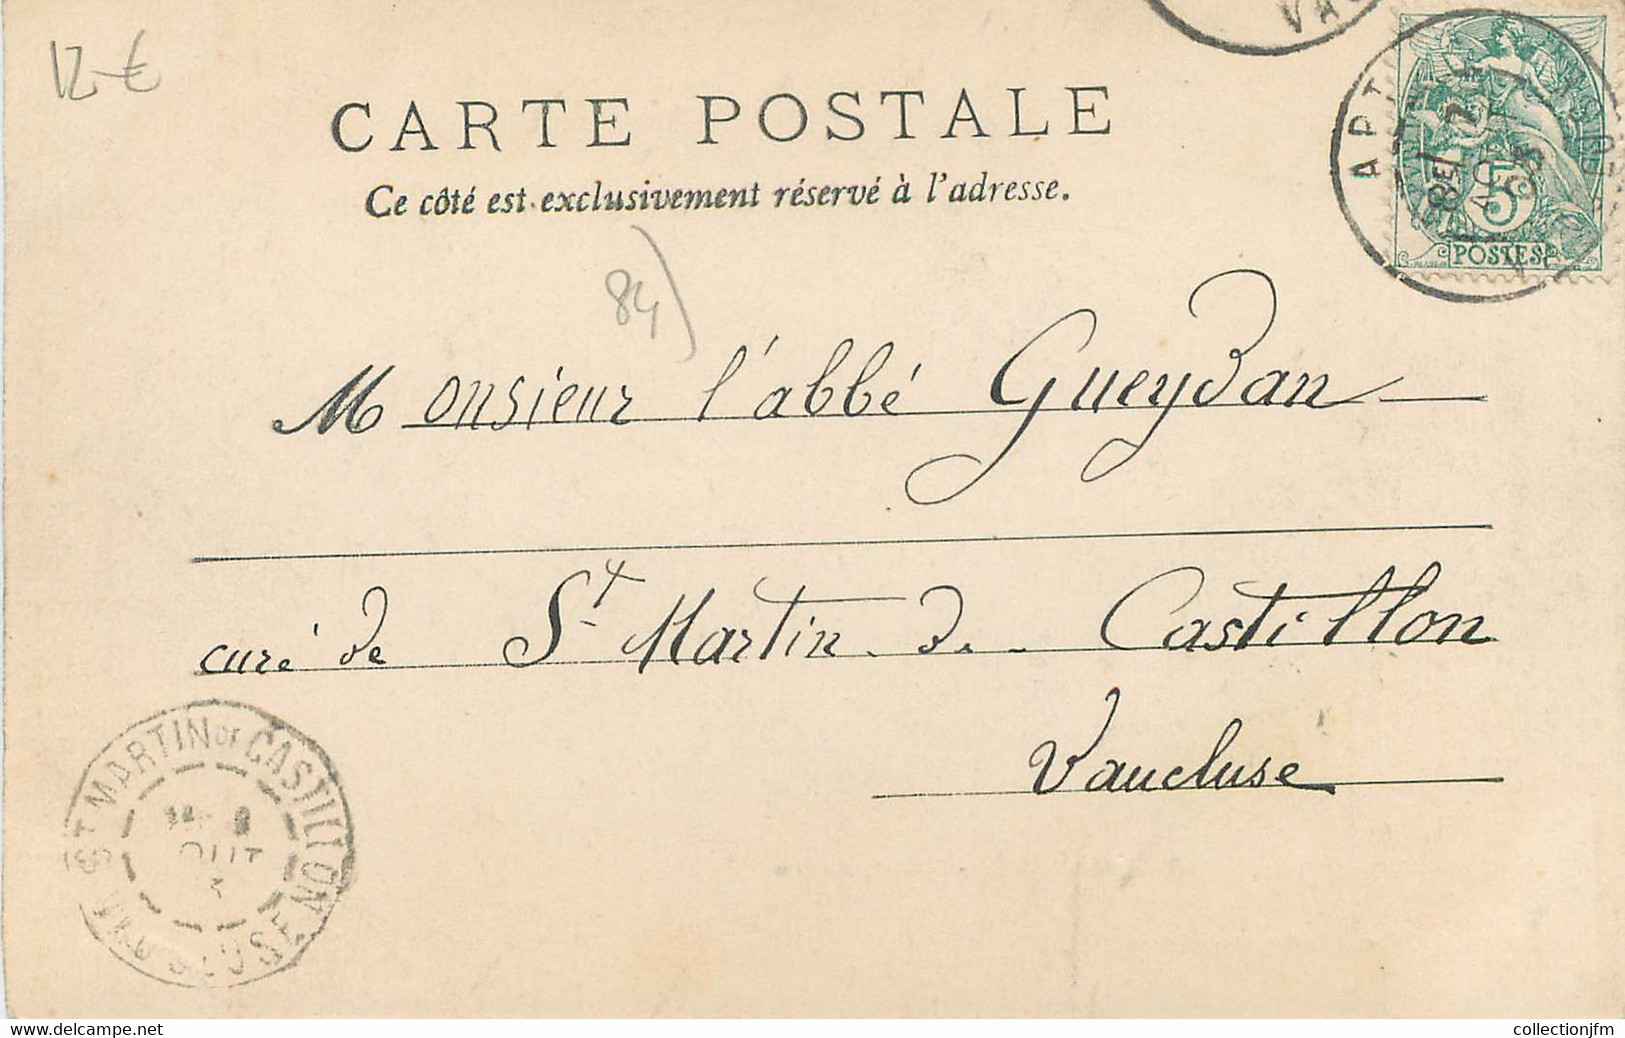 12-€
CARTE POSTALE
Ce côté est exclusivement réservé à l'adresse.
84)
APT
5
POSTES
Monsieur l'abbé Gueydan
curé de St Martin de Castillon
Vaucluse
ST MARTIN DE CASTILLON
VAUCLUSE
OUT
3
delcampe.net
collectionjfm